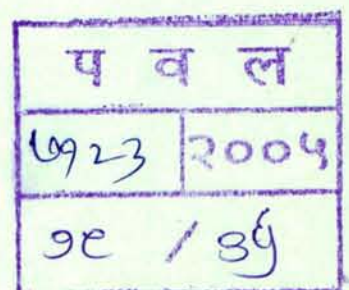 प व ल
७१२३ २००५
१९ / ३५